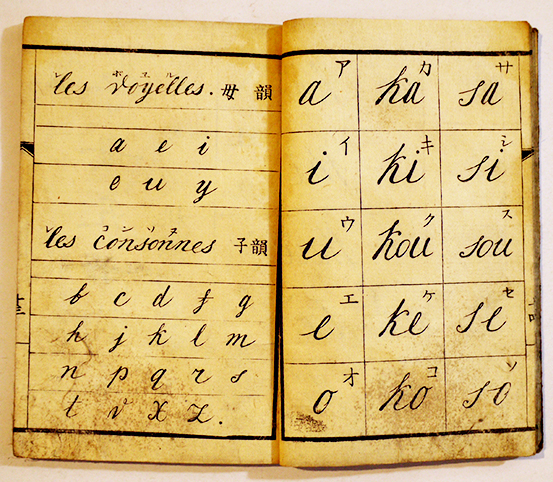 les voyelles. 母韻
a e i
e u y
les consonnes 子韻
b c d f g
h j k l m
n p q r s
t v x z.
ア カ サ
a ka sa
イ キ シ
i ki si
ウ ク ス
u kou sou
エ ケ セ
e ke se
オ コ ソ
o ko so